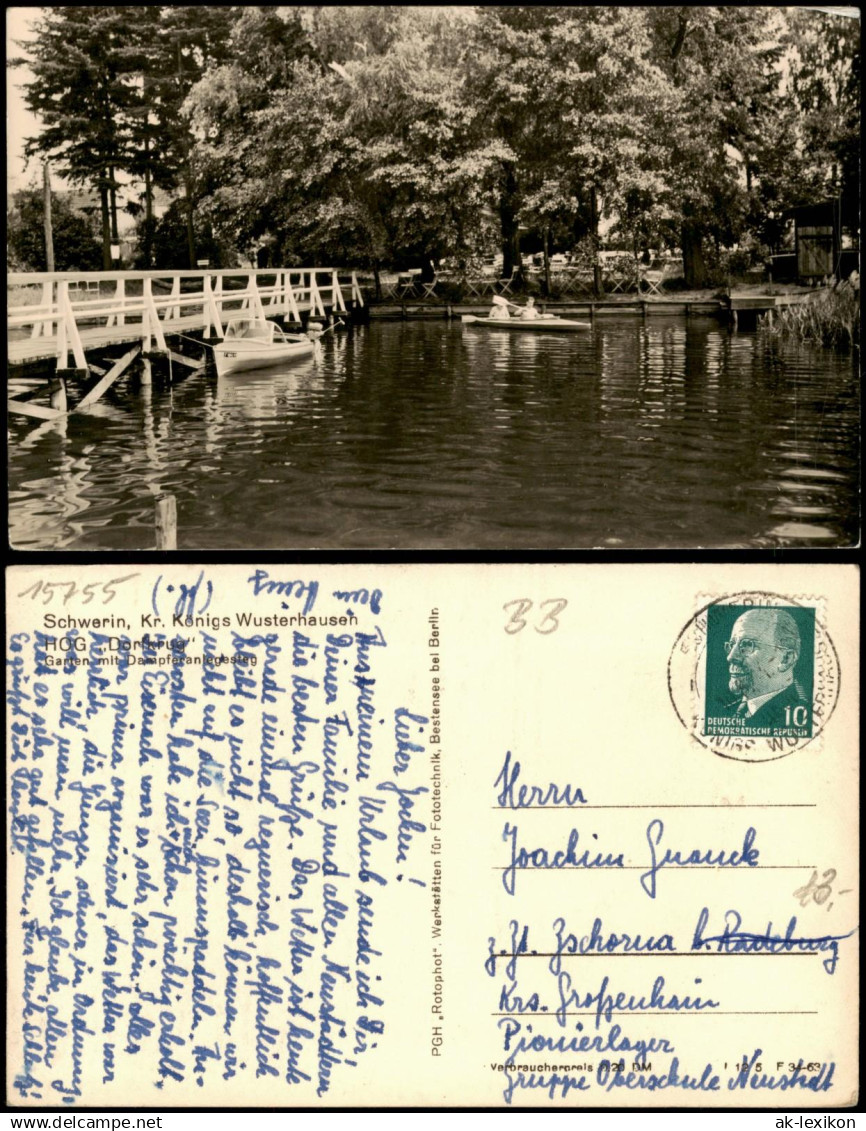 15755
Schwerin, Kr. Königs Wusterhausen
HOG „Dorfkrug"
Garten mit Dampferanlegesteg
PGH „Rotophot", Werkstätten für Fototechnik, Bestensee bei Berlin
BB
DEUTSCHE
DEMOKRATISCHE REPUBLIK
10
KÖNIGS WUSTERHAUSEN
Lieber Jochen!
Aus meinem Urlaub sende ich Dir,
Deiner Familie und allen Neustädtern
die besten Grüße. Das Wetter ist heute
gerade einmal regnerisch, hoffentlich
bleibt es nicht so, deshalb können wir
nicht auf die Seen hinauspaddeln. In-
zwischen habe ich mich schon prächtig erholt.
In Eisenach war es sehr schön, alles
war prima organisiert, das Wetter war
herrlich, die Jungen schwer in Ordnung,
was will man mehr. Ich glaube, allen
hat es sehr gut gefallen.
Es grüßt Dich
Dein
Herrn
Joachim Gnauck
z. Zt. Zschorna b. Radeburg
Krs. Großenhain
Pionierlager
Gruppe Oberschule Neustadt
Verbraucherpreis 0,20 DM
F 34-63
13,-
ak-lexikon